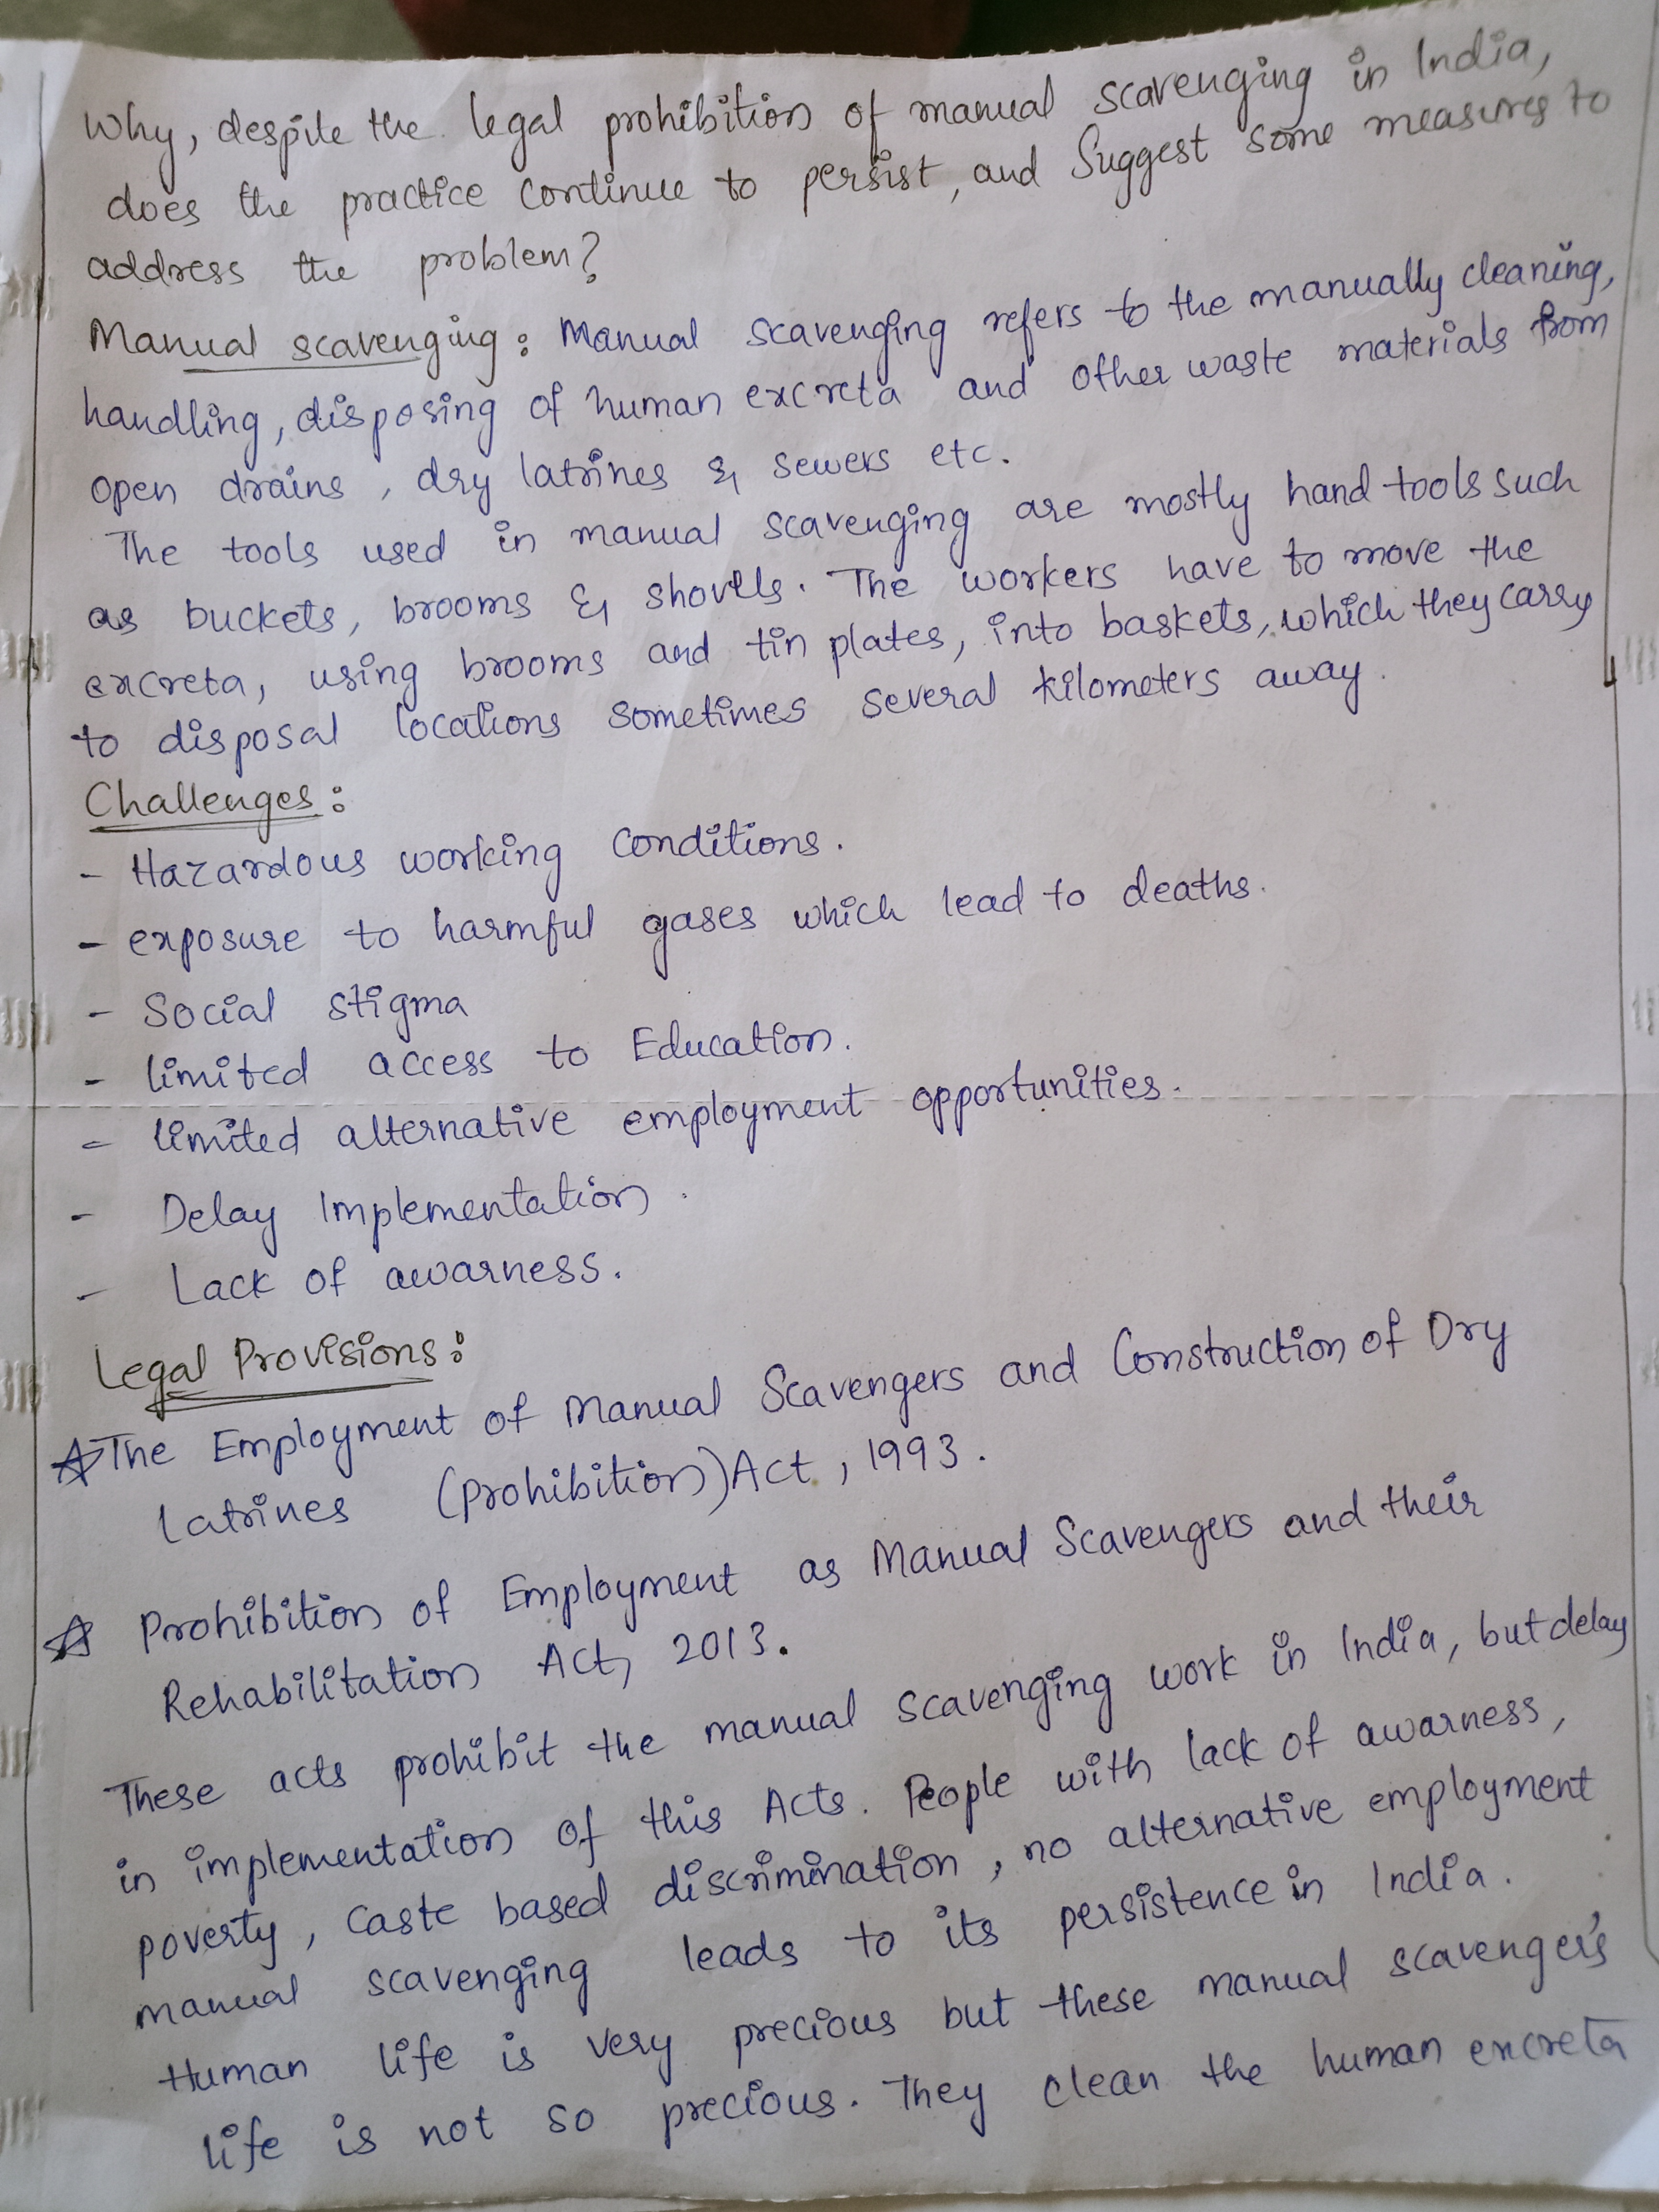 Why, despite the legal prohibition of manual scavenging in India,
does the practice continue to persist, and Suggest some measures to
address the problem?
Manual scavenging: Manual scavenging refers to the manually cleaning,
handling, disposing of human excreta and other waste materials from
open drains, dry latrines & sewers etc.
The tools used in manual scavenging are mostly hand tools such
as buckets, brooms & shovells. The workers have to move the
excreta, using brooms and tin plates, into baskets, which they carry
to disposal locations sometimes several kilometers away.
Challenges:
- Hazardous working conditions.
- exposure to harmful gases which lead to deaths.
- Social stigma
- limited access to Education.
- limited alternative employment opportunities.
- Delay Implementation.
- Lack of awarness.
Legal Provisions:
☆ The Employment of Manual Scavengers and Construction of Dry
Latrines (Prohibition) Act, 1993.
☆ Prohibition of Employment as Manual Scavengers and their
Rehabilitation Act, 2013.
These acts prohibit the manual scavenging work in India, but delay
in implementation of this Acts. People with lack of awarness,
poverty, caste based discrimination, no alternative employment
manual scavenging leads to its persistence in India.
Human life is very precious but these manual scavenger's
life is not so precious. They clean the human excreta